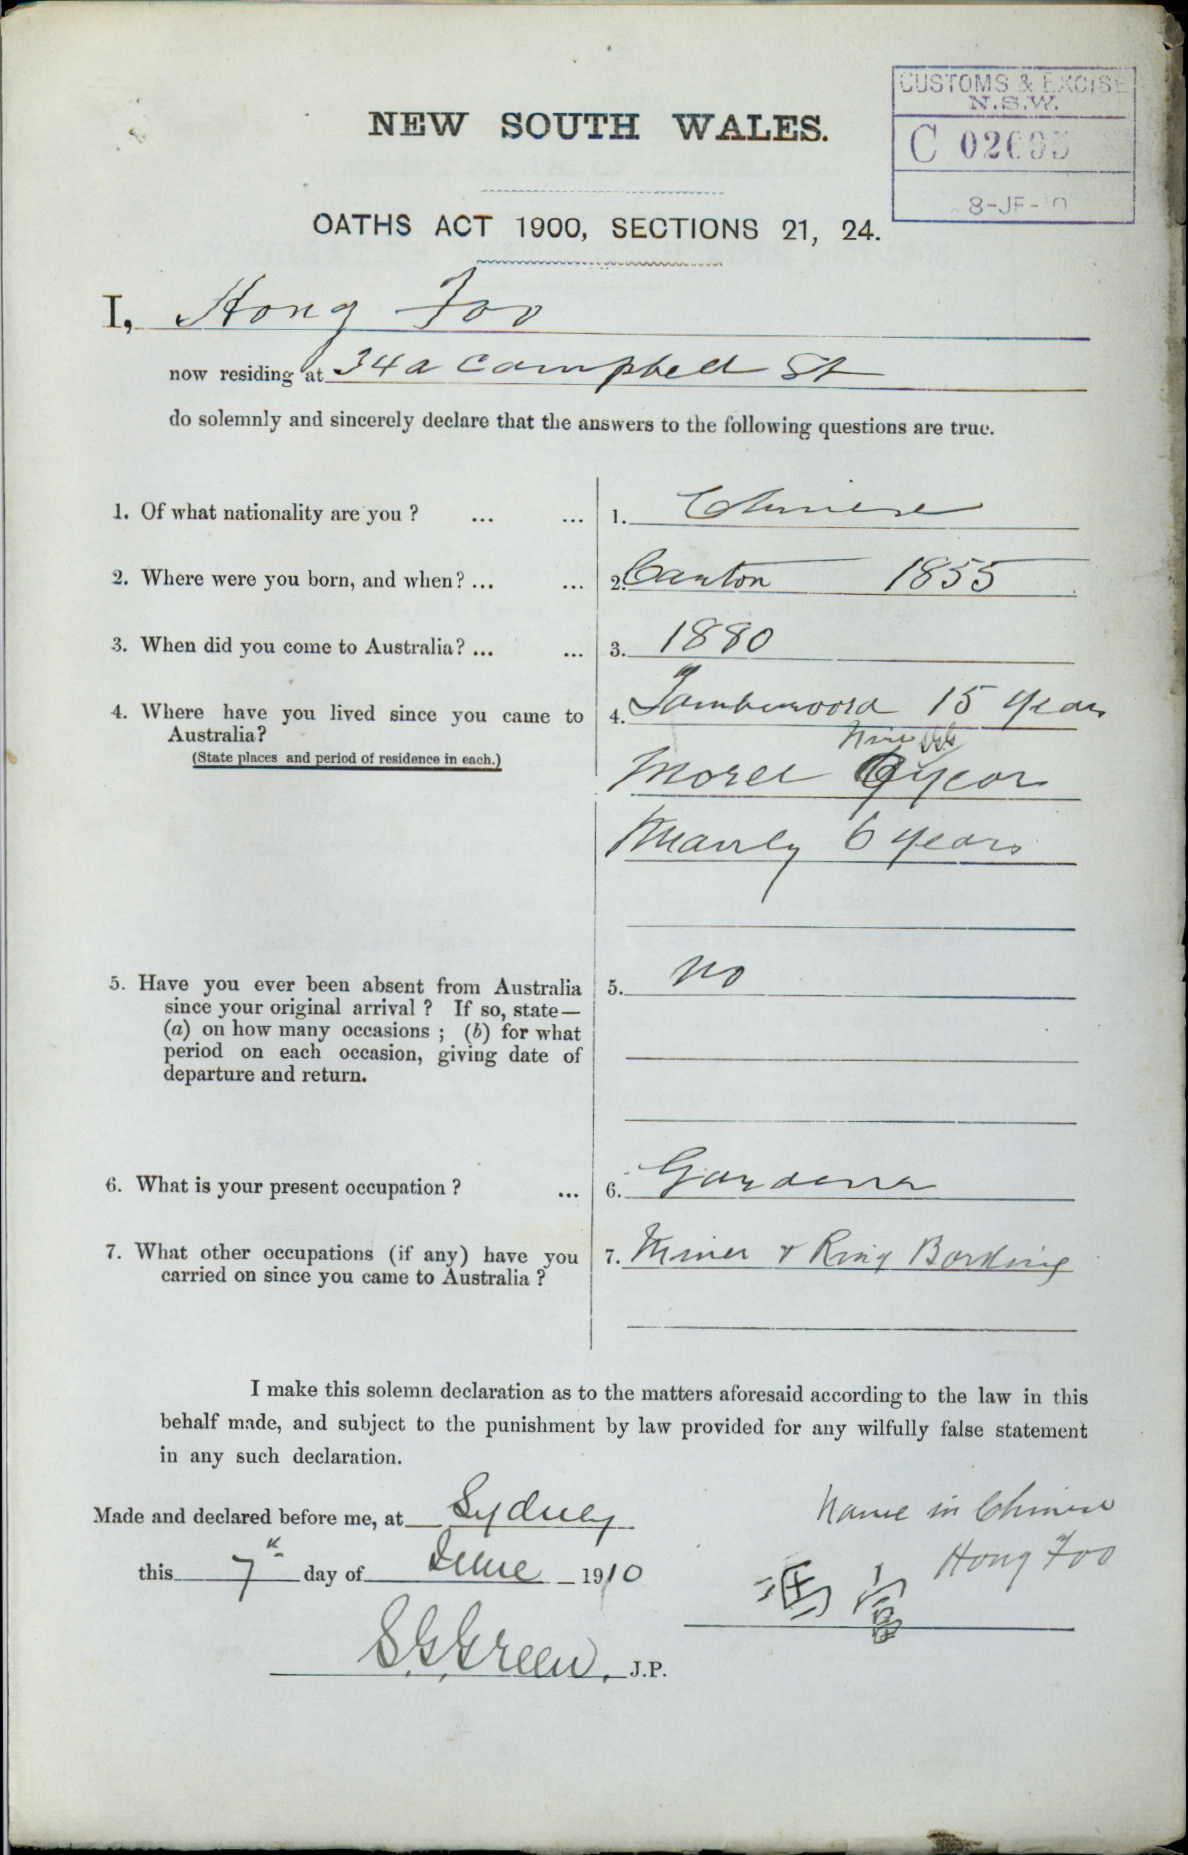 CUSTOMS & EXCISE
N.S.W.
C 02695
8-JE-10
NEW SOUTH WALES.
OATHS ACT 1900, SECTIONS 21, 24.
I, Hong Foo
now residing at 34a Campbell St
do solemnly and sincerely declare that the answers to the following questions are true.
1. Of what nationality are you ? ... ... 1. Chinese
2. Where were you born, and when ? ... ... 2. Canton 1855
3. When did you come to Australia ? ... ... 3. 1880
4. Where have you lived since you came to 4. Tamburoora 15 years
Australia?
(State places and period of residence in each.)
Nine
Moree 9 years
Manly 6 years
5. Have you ever been absent from Australia 5. no
since your original arrival ? If so, state—
(a) on how many occasions ; (b) for what
period on each occasion, giving date of
departure and return.
6. What is your present occupation ? ... 6. Gardener
7. What other occupations (if any) have you 7. Miner & Ring Barking
carried on since you came to Australia ?
I make this solemn declaration as to the matters aforesaid according to the law in this
behalf made, and subject to the punishment by law provided for any wilfully false statement
in any such declaration.
Made and declared before me, at Sydney
Name in Chinese
Hong Foo
this 7th day of June 1910
馮富
S.G. Green, J.P.